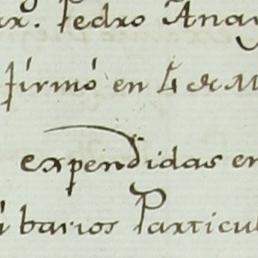 r. Pedro Anay
firmó en 4 de M
expendidas en
barios Particul